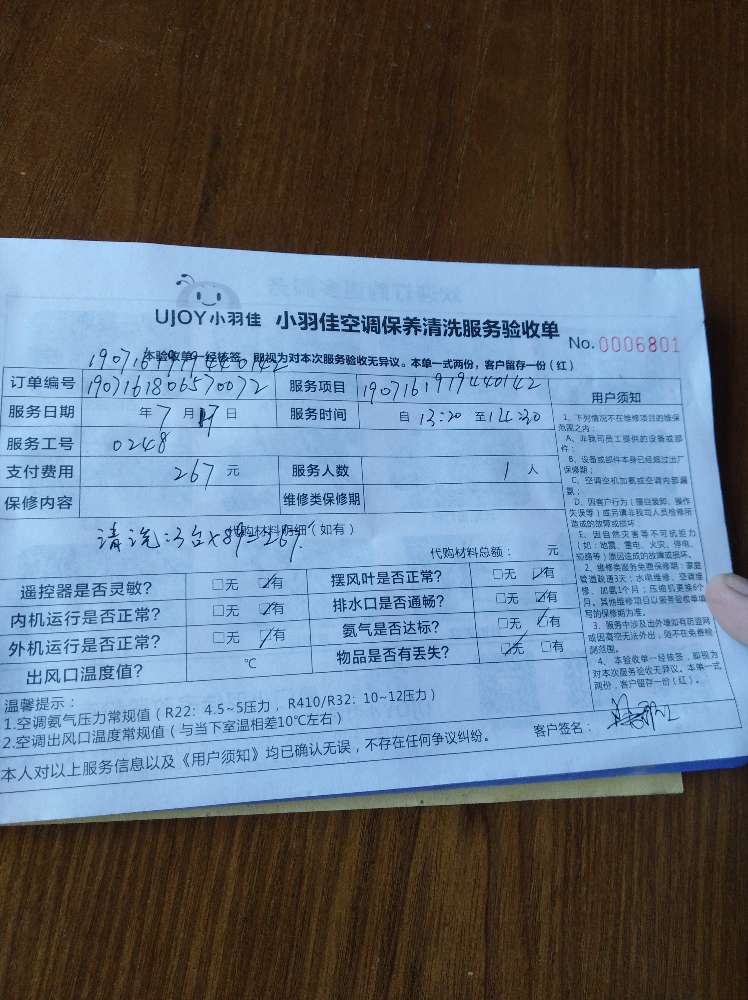 UJOY小羽佳 小羽佳空调保养清洗服务验收单 No. 0006801
190716197944 0142
本验收单一经核签，即视为对本次服务验收无异议。本单一式两份，客户留存一份（红）
订单编号 1907161806570072 服务项目 190716197944 0142
服务日期 年7月17日 服务时间 自13:20至14:30
服务工号 0248
支付费用 267元 服务人数 1人
保修内容 维修类保修期
代购材料明细（如有）
清洗:3台×89=267.
代购材料总额： 元
遥控器是否灵敏？ □无 ☑有 摆风叶是否正常？ □无 ☑有
内机运行是否正常？ □无 ☑有 排水口是否通畅？ □无 ☑有
外机运行是否正常？ □无 ☑有 氨气是否达标？ □无 ☑有
出风口温度值？ ℃ 物品是否有丢失？ ☑无 □有
温馨提示：
1.空调氨气压力常规值（R22：4.5~5压力，R410/R32：10~12压力）
2.空调出风口温度常规值（与当下室温相差10℃左右）
本人对以上服务信息以及《用户须知》均已确认无误，不存在任何争议纠纷。 客户签名：
用户须知
1、下列情况不在维修项目的维保
范围之内：
A、非我司员工提供的设备或部
件；
B、设备或部件本身已经超过出厂
保修期；
C、空调空机加氨或空调内部漏
氨；
D、因客户行为（擅自装卸、操作
失误等）或另请非我司人员检修所
造成的故障或损坏
E、因自然灾害等不可抗拒力
（如：地震、雷电、火灾、停电、
短路等）原因造成的故障或损坏。
2、维修类服务免费保修期：家庭
管道疏通3天；水电维修、空调维
修、加氨1个月；压缩机更换6个
月。其他维修项目以服务验收单填
写的保修期为准。
3、服务中涉及出外墙如有防盗网
或因高空无法外出，则不在免费检
测范围。
4、本验收单一经核签，即视为
对本次服务验收无异议。本单一式
两份，客户留存一份（红）。